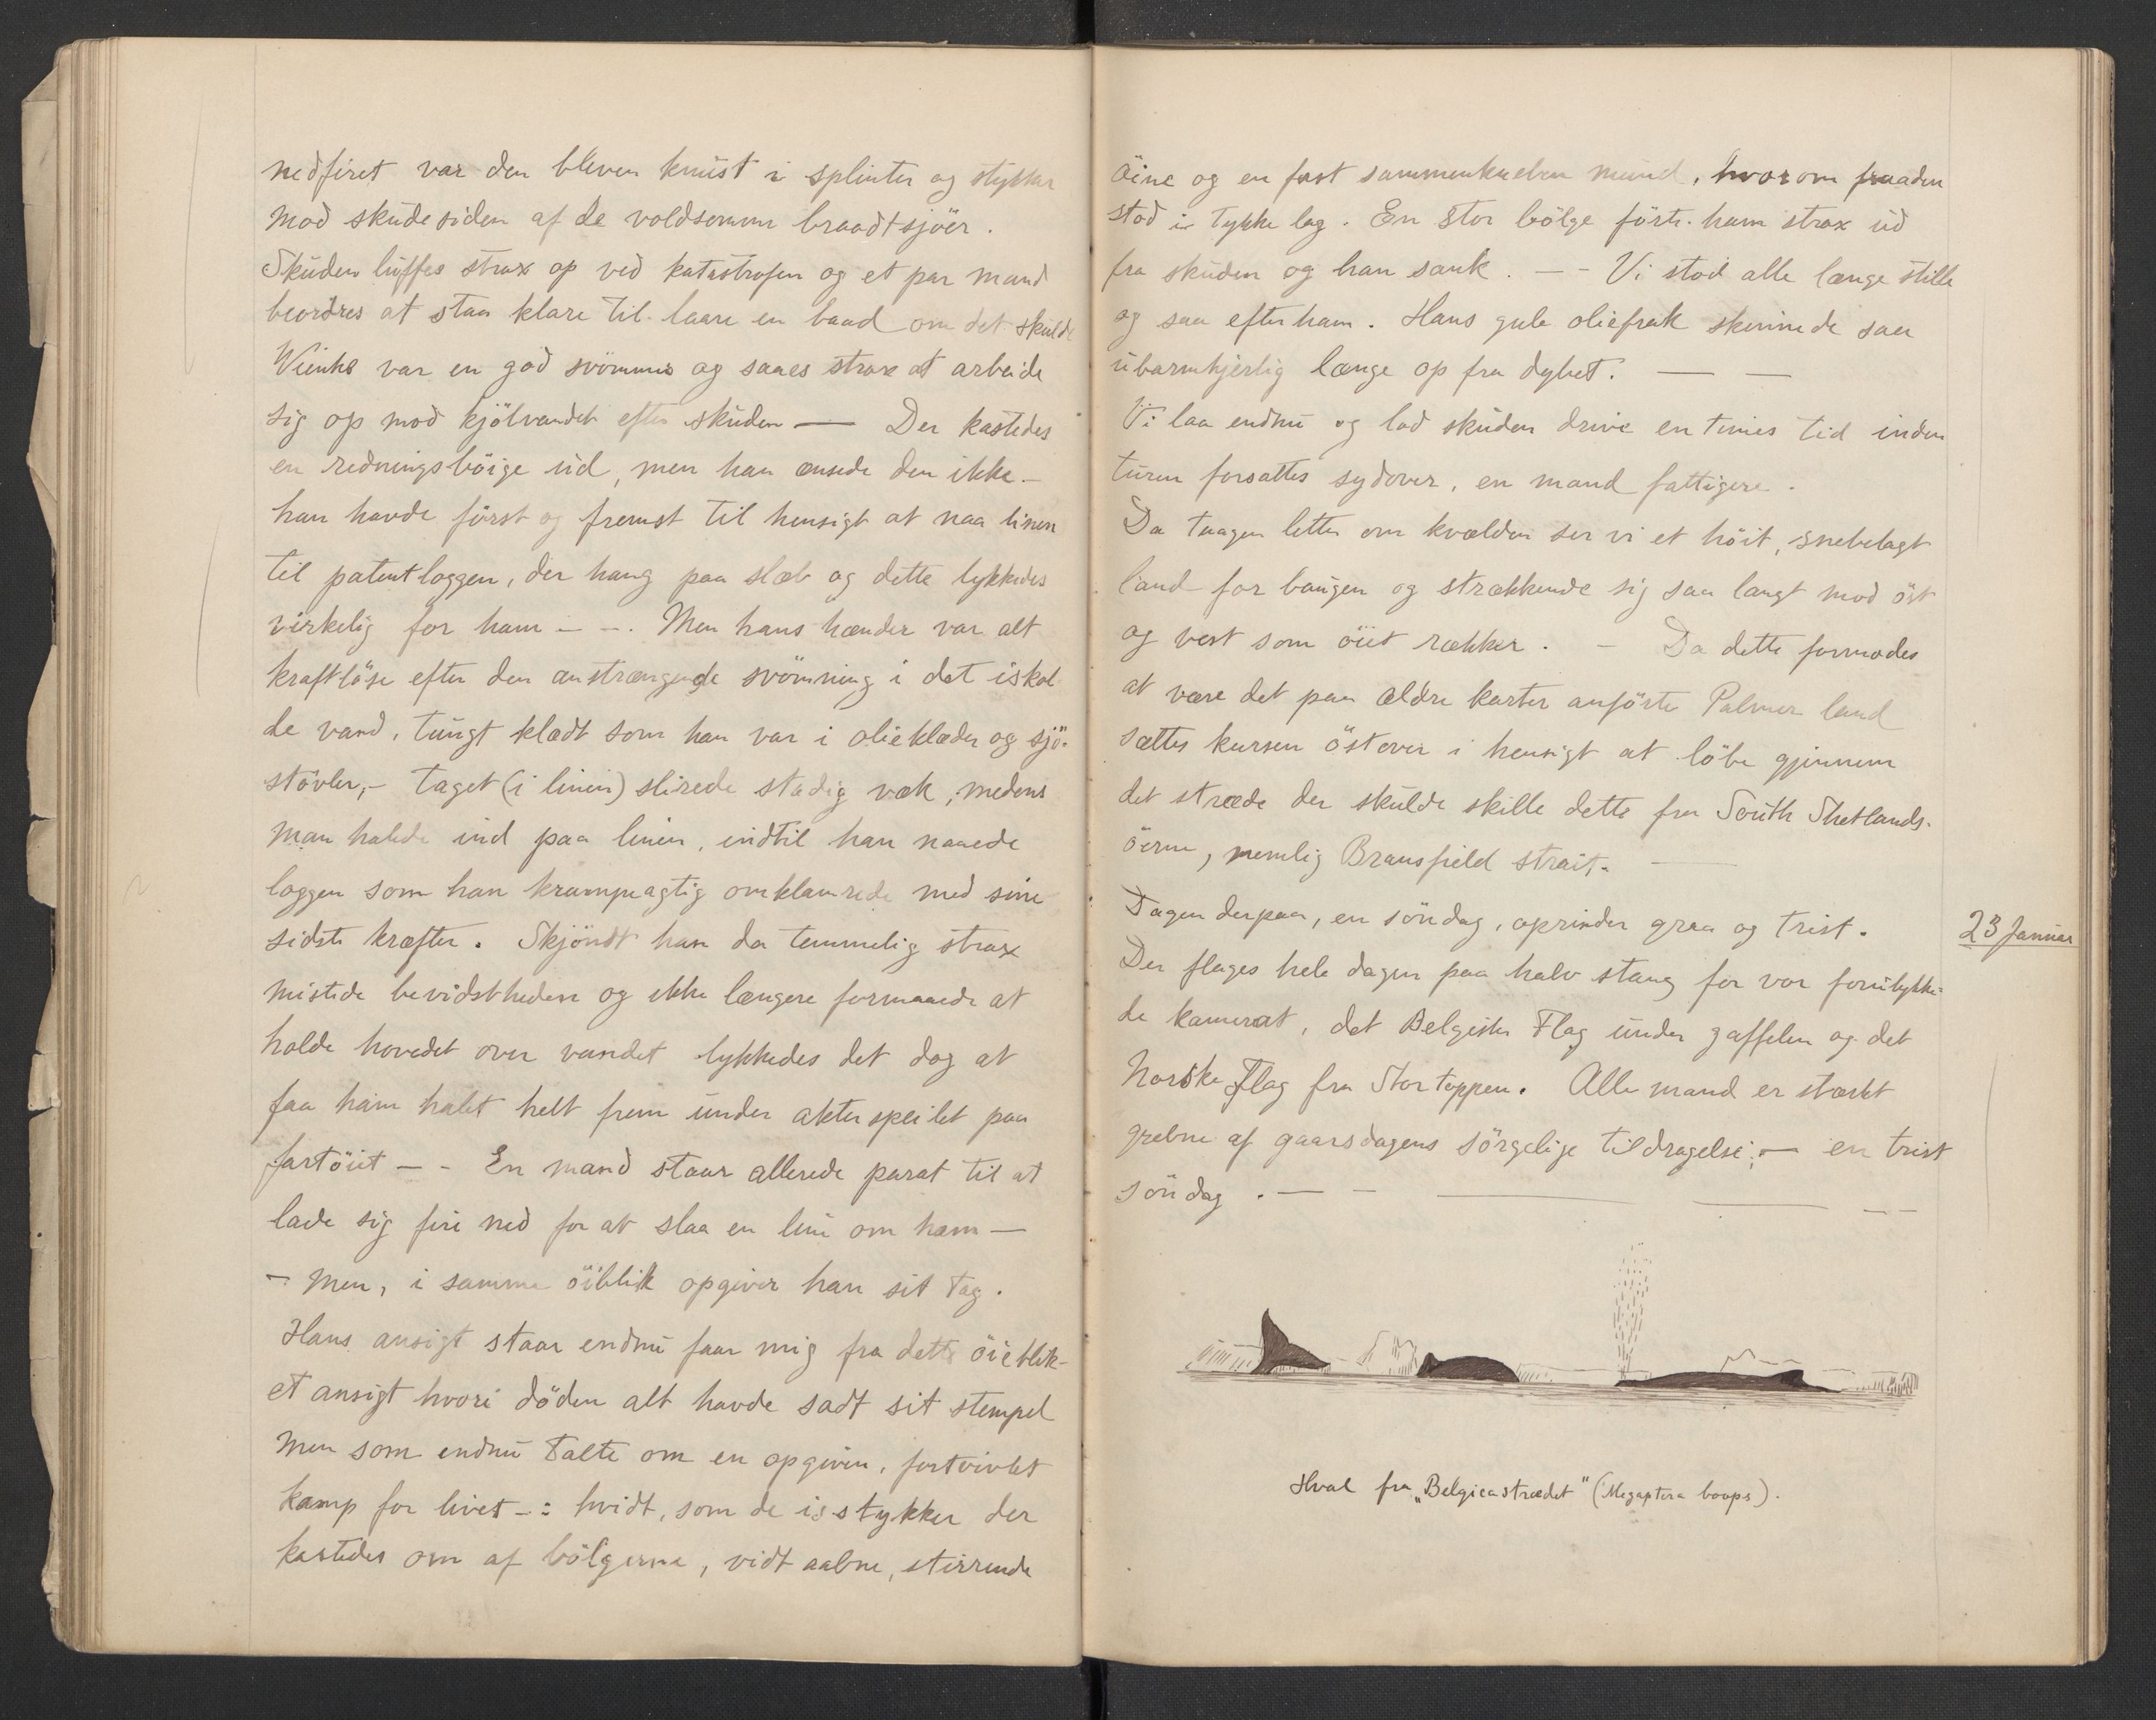 nedfiret var den bleven knust i splinter og stykker
mod skudesiden af de voldsomme braadtsjöer.
Skuden luffes strax op ved katastrofen og et par mand
beordres at staa klare til laare en baad om det skulde
Wienke var en god svömmer og saaes strax at arbeide
sig op mod kjölvandet efter skuden — Der kastedes
en redningsböige ud, men han ænsede den ikke –
han havde först og fremst til hensigt at naa linen
til patentloggen, der hang paa slæb og dette lykkedes
virkelig for ham – –. Men hans hænder var alt
kraftlöse efter den anstrængende svömning i det iskol
de vand, tungt klædt som han var i olieklæder og sjö-
stövler, – taget (i linen) slirede stadig væk, medens
man halede ind paa linen, indtil han naaede
loggen som han krampeagtig omklamrede med sine
sidste kræfter. Skjöndt han da temmelig strax
mistede bevidstheden og ikke længere formaaede at
holde hovedet over vandet lykkedes det dog at
faa ham halet helt frem under akterspeilet paa
fartöiet – – En mand staar allerede parat til at
lade sig fire ned for at slaa en line om ham —
– men, i samme öiblik opgiver han sit tag.
Hans ansigt staar endnu faar mig fra dette öieblik –
et ansigt hvori döden alt havde sadt sit stempel
men som endnu talte om en opgiven, fortvivlet
kamp for livet – : hvidt, som de isstykker der
kastedes om af bölgerne, vidt aabne, stirrende
öine og en fast sammenkneben mund, hvorom fraaden
stod i tykke lag. En stor bölge förte ham strax ud
fra skuden og han sank. – – Vi stod alle længe stille
og saa efter ham. Hans gule oliefrak skinnede saa
ubarmhjertig længe op fra dybet. — —
Vi laa endnu og lod skuden drive en times tid inden
turen forsattes sydover, en mand fattigere.
Da taagen letter om kvælden ser vi et höit, snebelagt
land for baugen og strækkende sig saa langt mod öst
og vest som öiet rækker. – Da dette formodes
at være det paa ældre karter anförte Palmer land
sættes kursen östover i hensigt at löbe gjennem
det stræde der skulde skille dette fra South Shetlands-
öerne, nemlig Bransfield strait. —
Dagen derpaa, en söndag, oprinder graa og trist.
23 Januar
Der flages hele dagen paa halv stang for vor forulykke-
de kamerat, det Belgiske Flag under gaffelen og det
Norske Flag fra Stortoppen. Alle mand er stærkt
grebne af gaarsdagens sörgelige tildragelse; – en trist
söndag . — – — — – –
Hval fra „Belgicastrædet" (Megaptera boops).